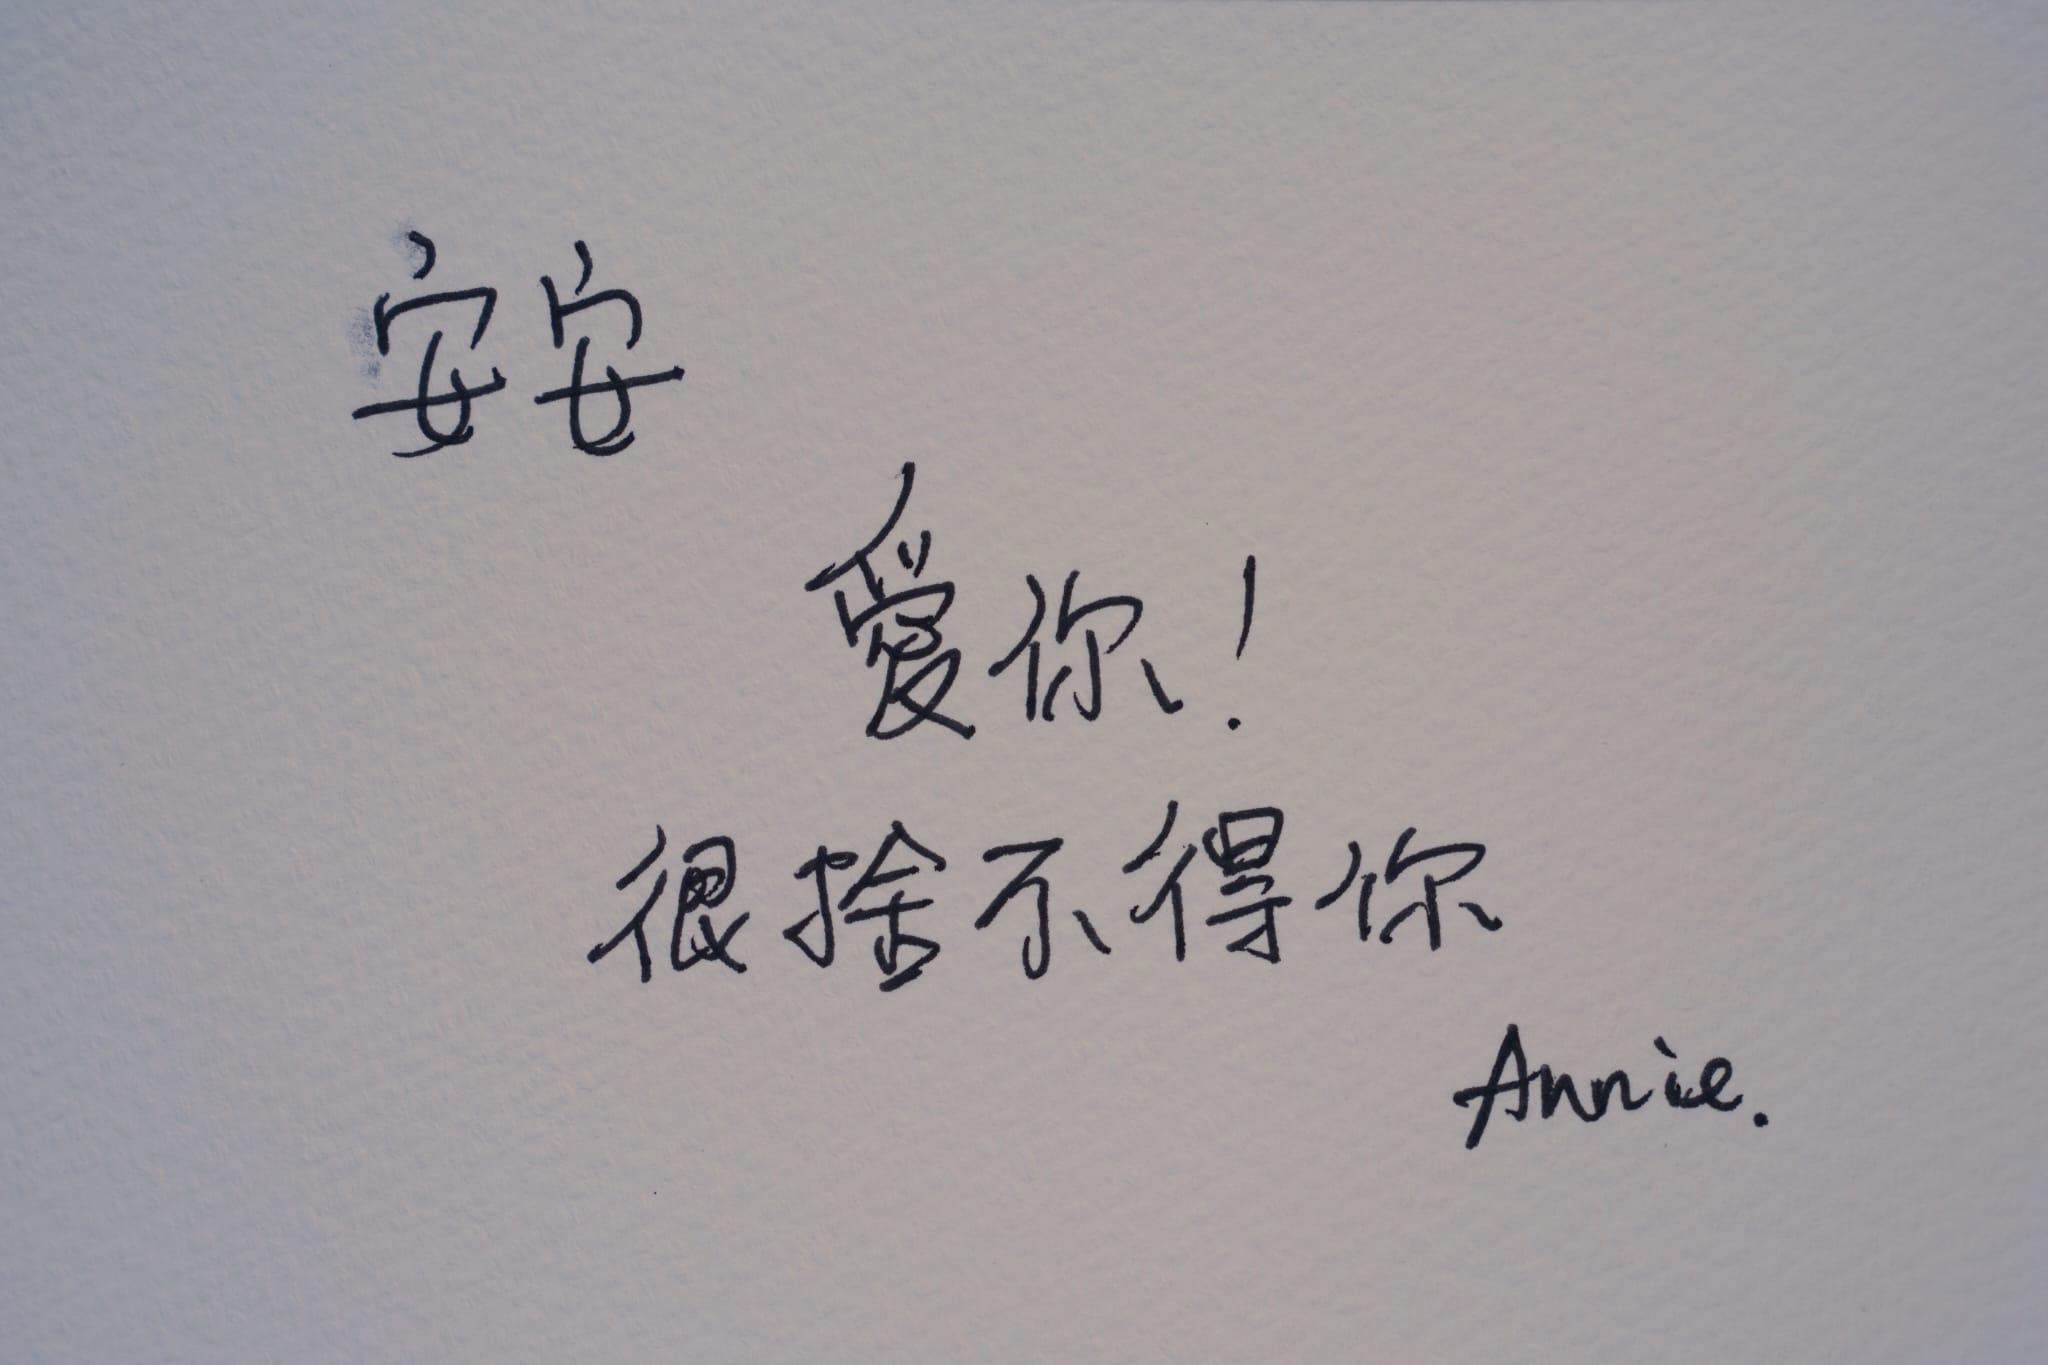 安安
愛你!
很捨不得你
Annie.